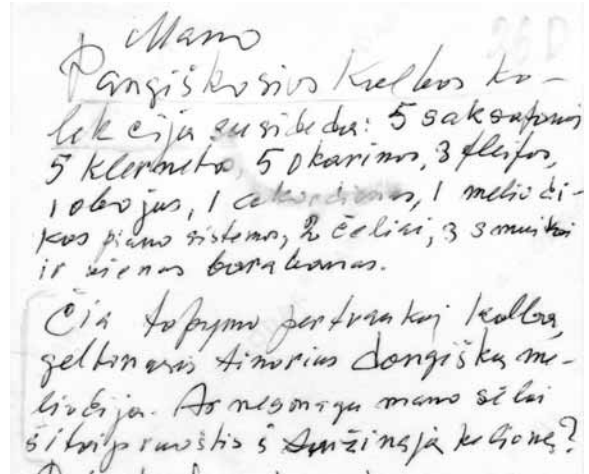 Mano
Dangiškosios Kalbos ko-
lekcija susideda: 5 saksofonis
5 klerneto, 5 okarinos, 3 fleitos,
1 obojus, 1 akordionas, 1 melodi-
kos piano sistemos, 2 čeliai, 3 smuikai
ir vienas barabanas.
Čia tapymo pertraukoj kalba
tinorius dangiška me-
liodija. Ar negonigu mano sėlai
šitaip ruoštis į amžinąją kelionę?